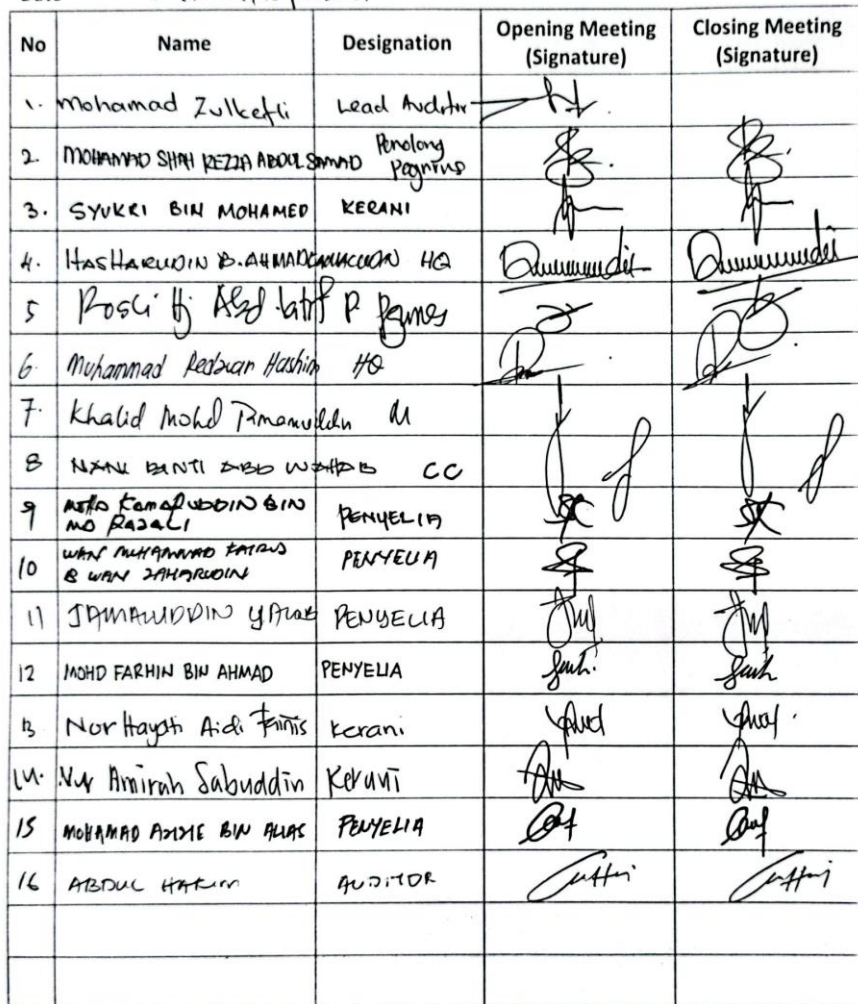 No Name Designation Opening Meeting Closing Meeting
(Signature) (Signature)
1. Mohamad Zulkefli Lead Auditor
2. MOHAMAD SHAH REZZA ABDUL SAMAD Penolong
3. SYUKRI BIN MOHAMED KERANI
4. HASHARUDIN B. AHMAD HQ
5 Rosli Hj Abd Latif P
6. Muhammad Redzuan Hashim HQ
7. Khalid Mohd
8 NANI BINTI ABD WAHAB CC
9 MOHD KAMARUDDIN BIN PENYELIA
MD RAZALI
10 WAN MUHAMMAD FAIRUS PENYELIA
B WAN ZAHARUDIN
11 JAMALUDDIN PENYELIA
12 MOHD FARHIN BIN AHMAD PENYELIA
13 Nor Hayati Aidi Kerani
14. Nur Amirah Sabuddin Kerani
15 MOHAMAD AZIZIE BIN ALIAS PENYELIA
16 ABDUL HAKIM AUDITOR